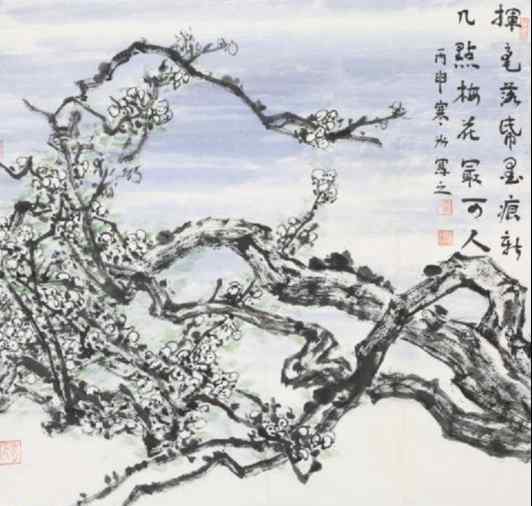 揮毫落帋墨痕新
几點梅花最可人
丙申寒寫之